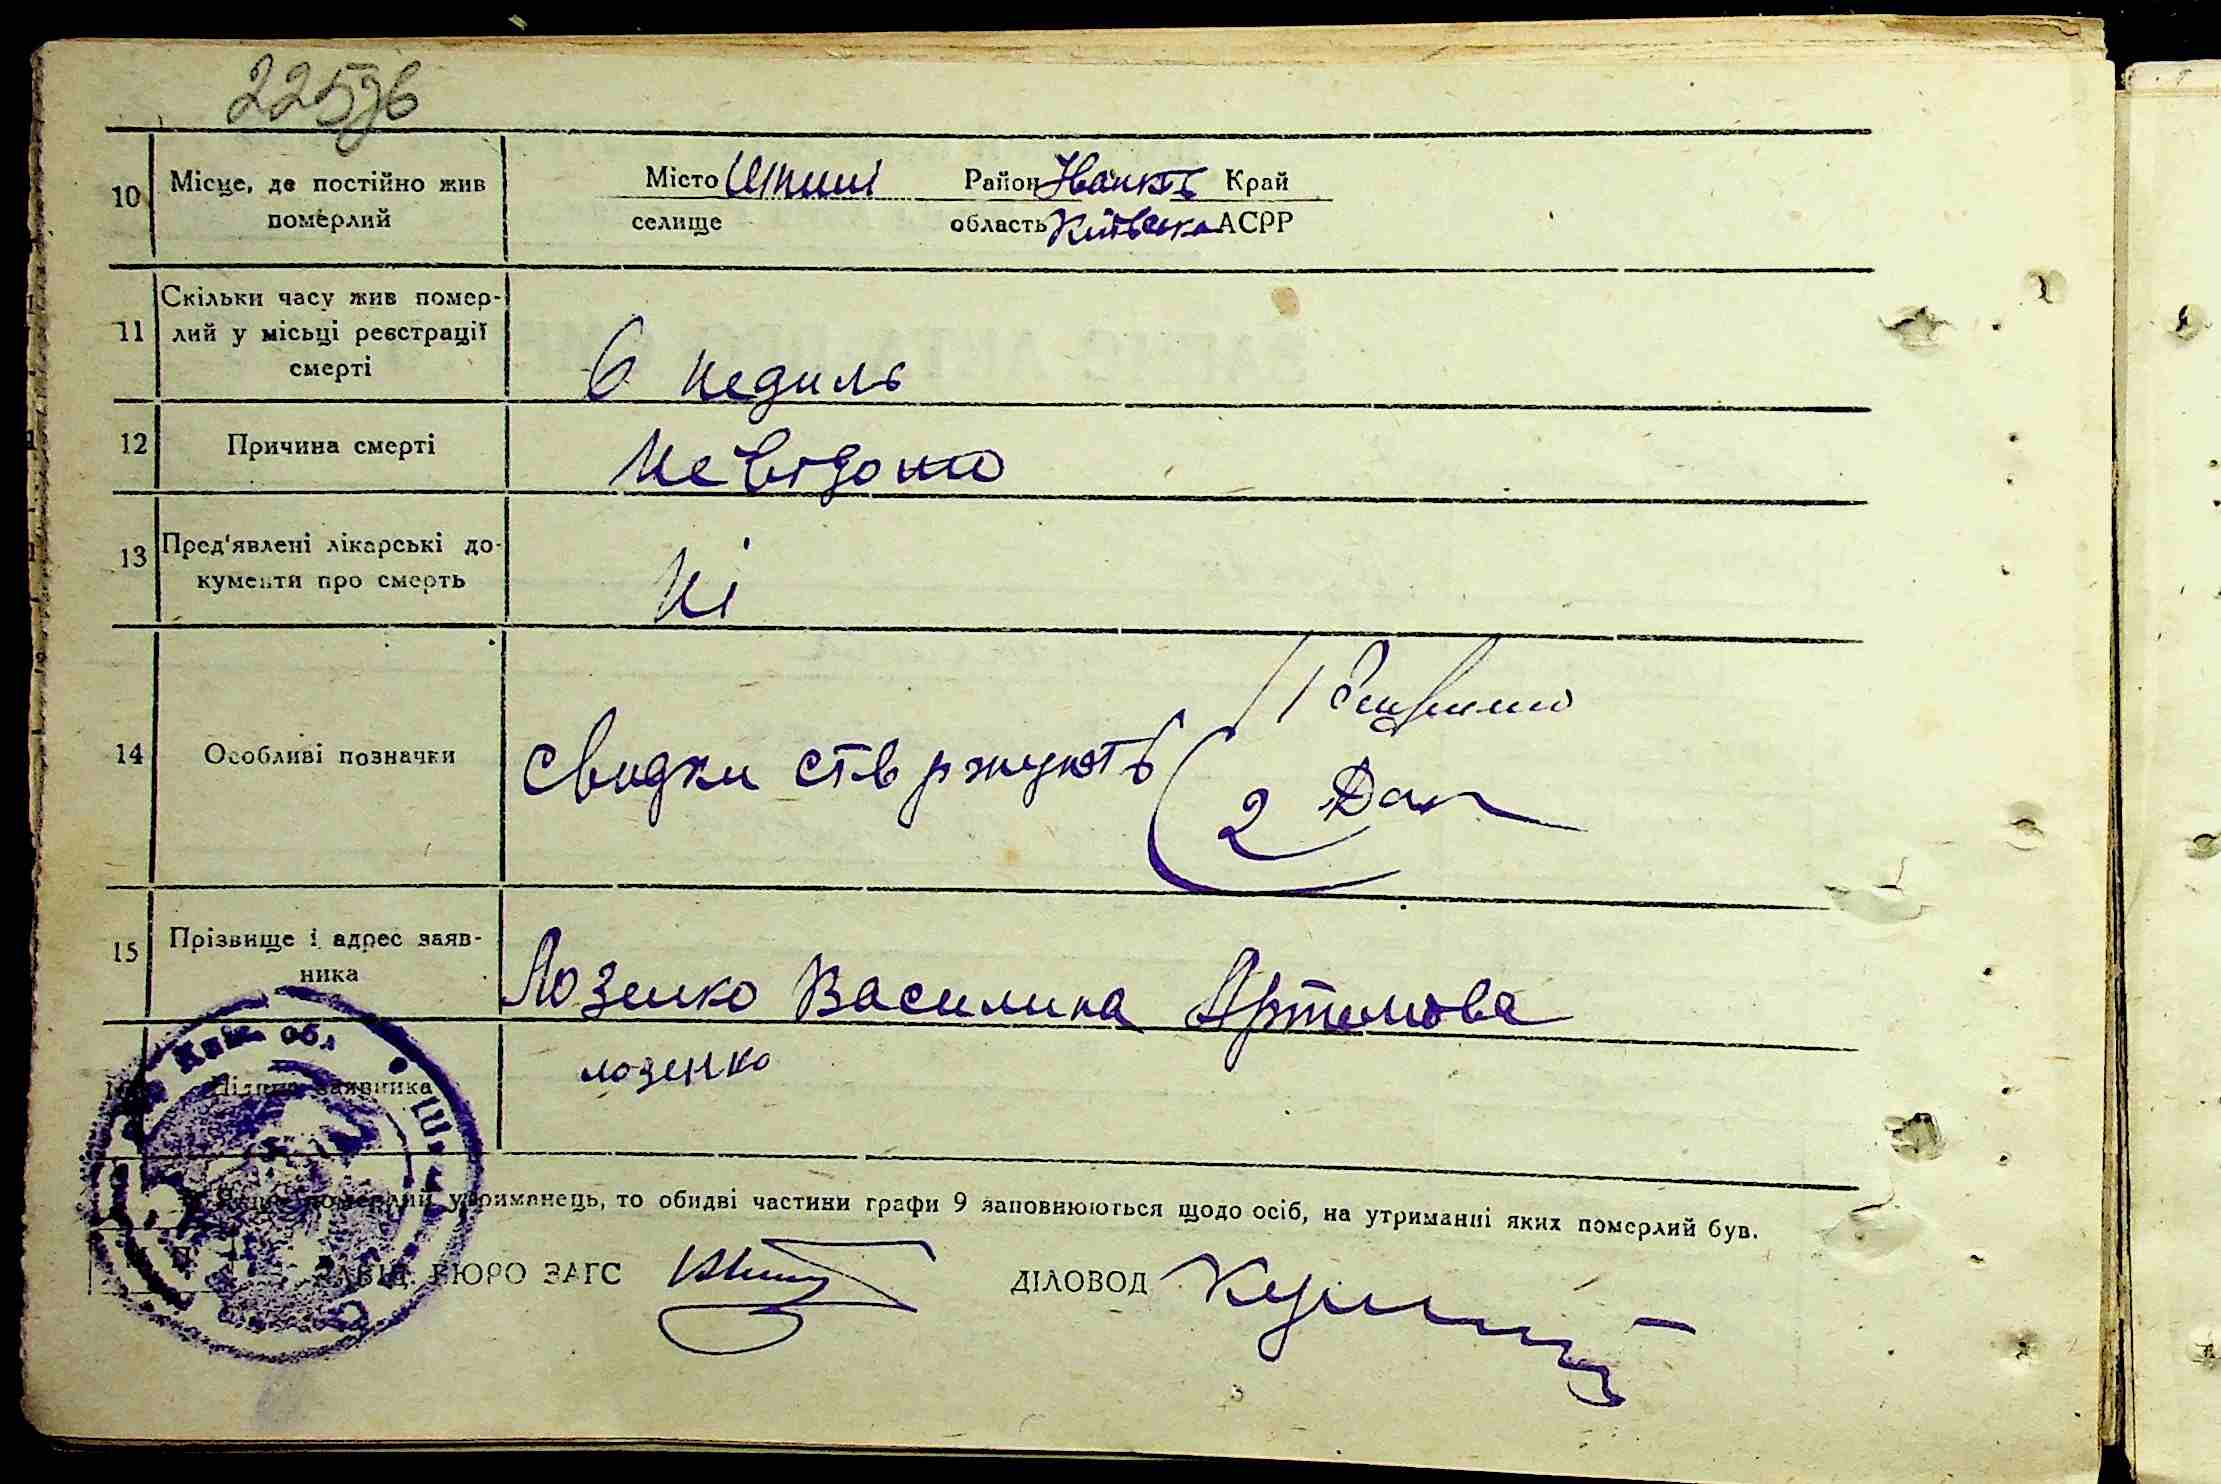 225зв
10 Місце, де постійно жив Місто Шпилі Район Іванк. Край
померлий селище область Київська АСРР
11 Скільки часу жив помер-
лий у місьці реєстрації
смерті
6 недиль
12 Причина смерті невідомо
13 Пред'явлені лікарські до-
кументи про смерть
Ні
14 Особливі позначки свидки ствржують
1
2
15 Прізвище і адрес заяв-
ника
Лозенко Василина Артемова
Київ. обл
заявника лозенко
померлий утриманець, то обидві частини графи 9 заповнюються щодо осіб, на утриманні яких померлий був.
ЗАВІД. БЮРО ЗАГС ДІЛОВОД